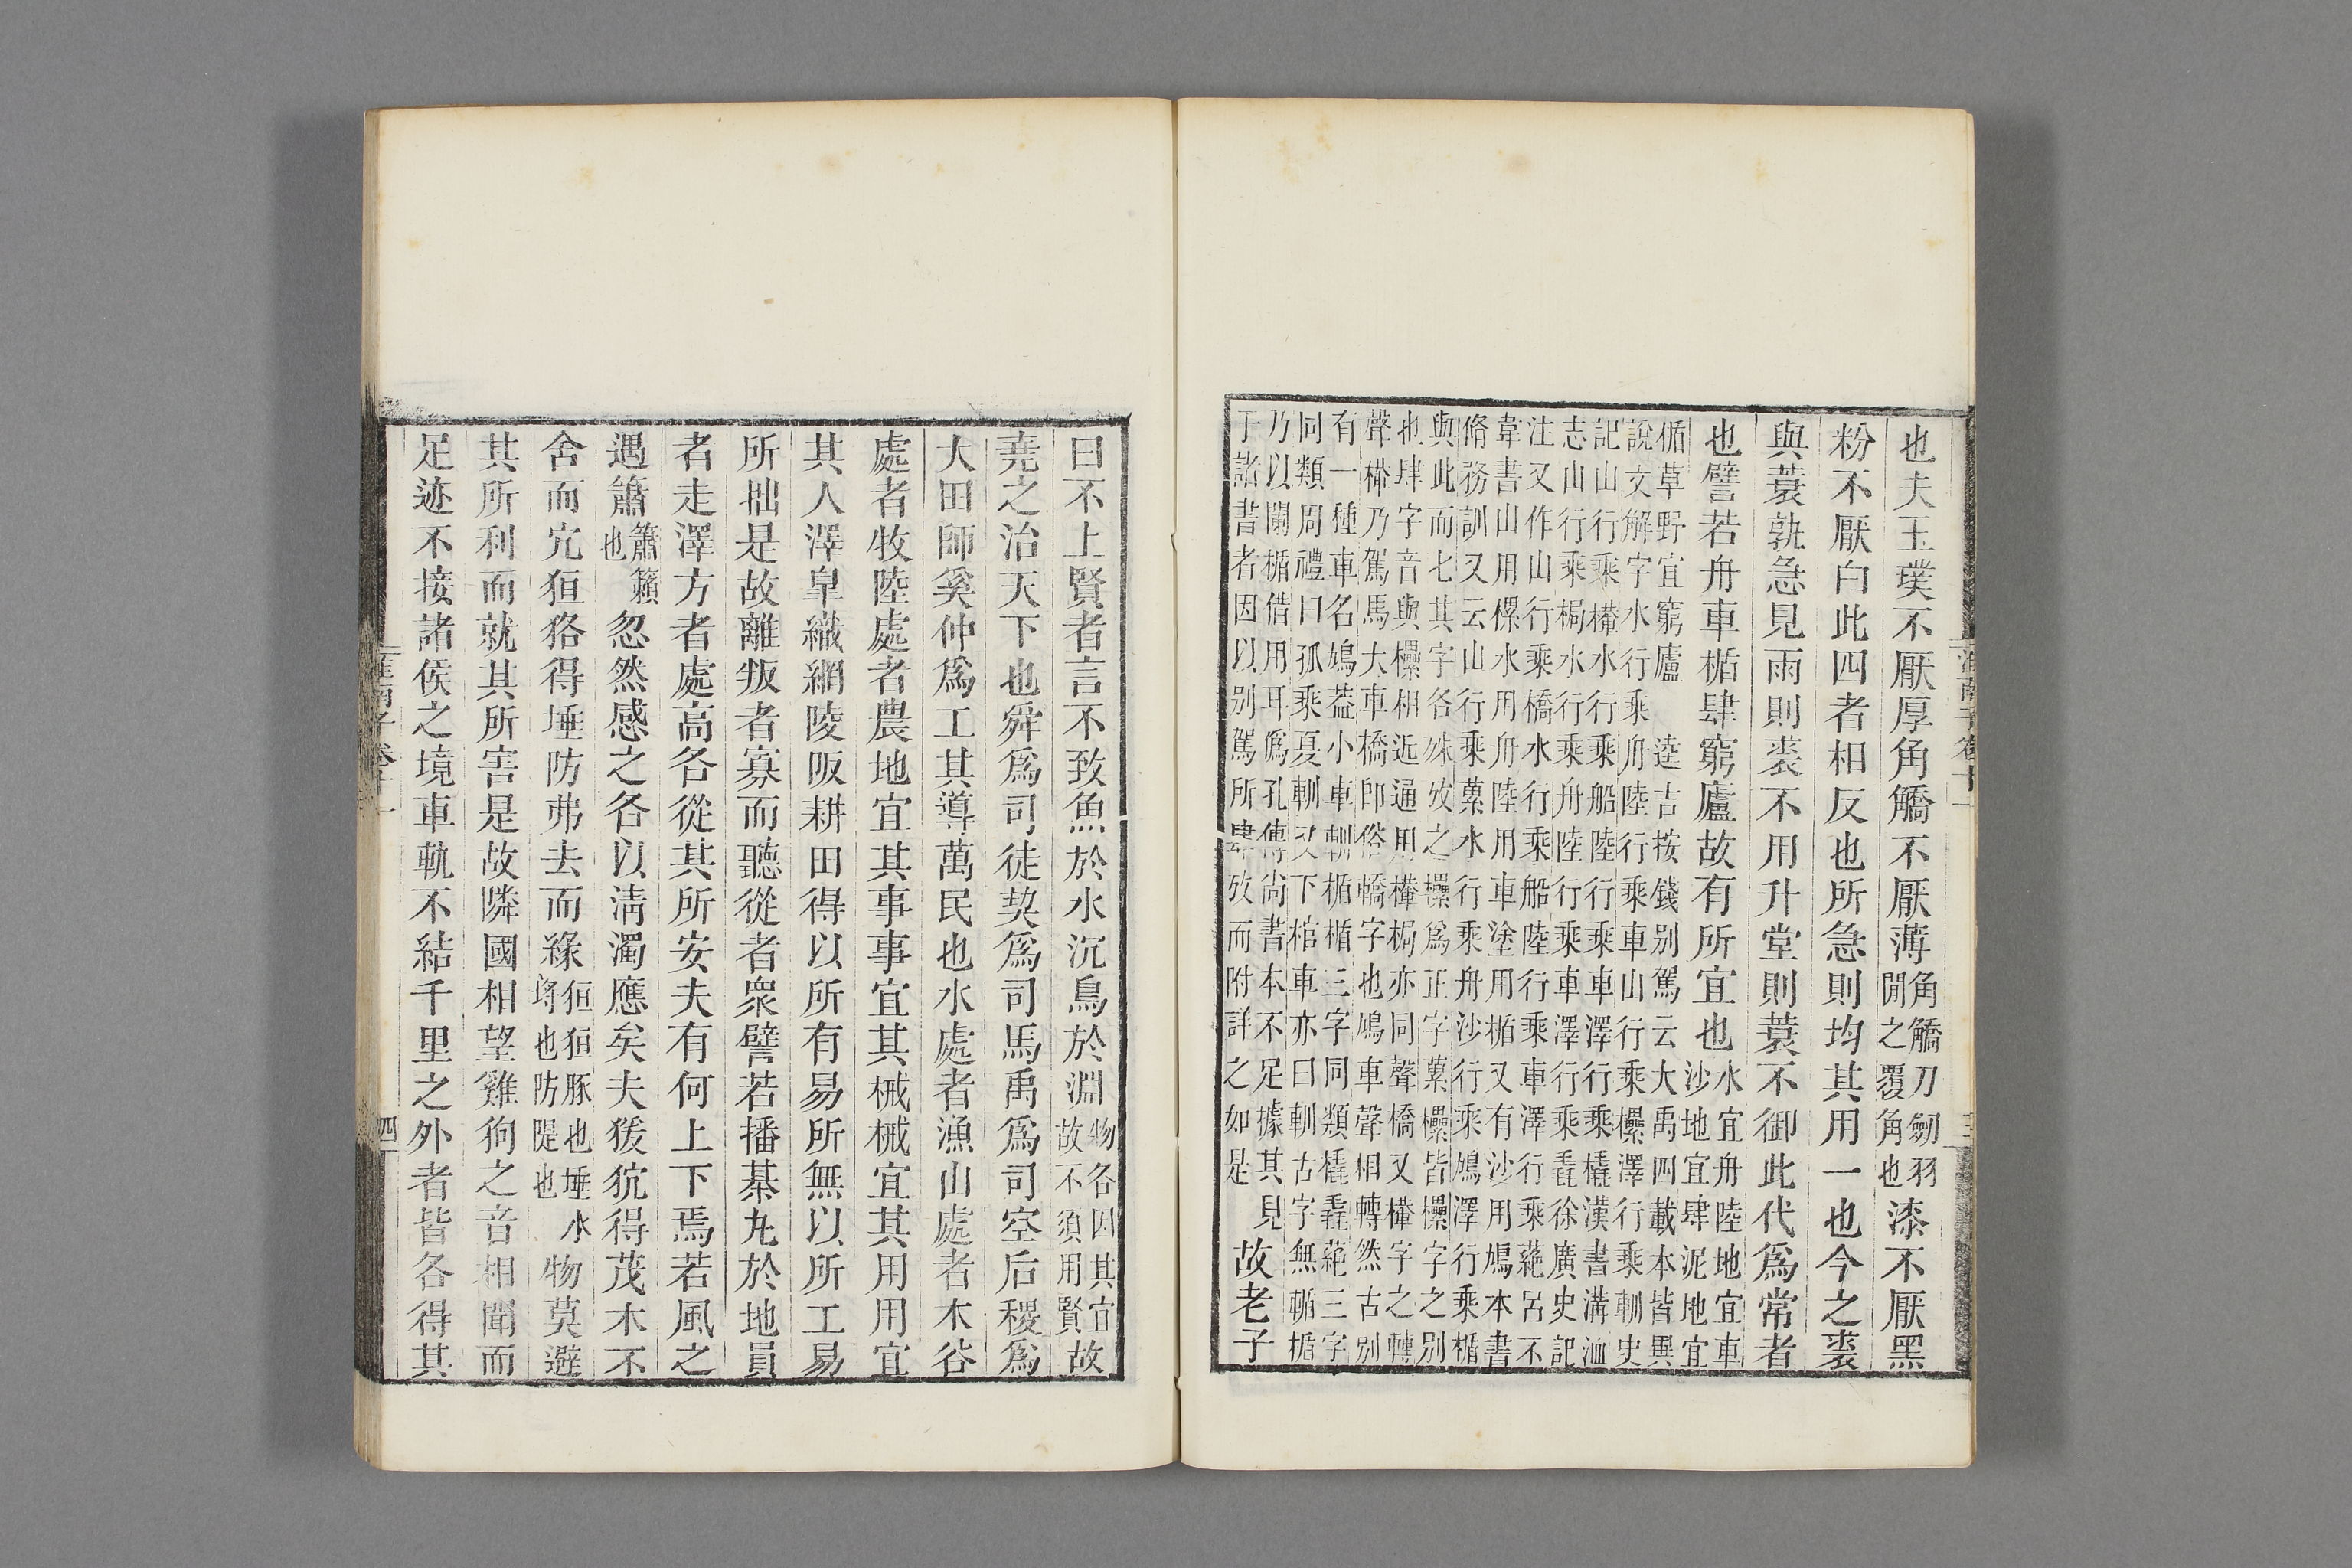 也夫玉璞不厭厚角䚩不厭薄角䚩刀劒羽閒之覆角也漆不厭黑
粉不厭白此四者相反也所急則均其用一也今之裘
與蓑孰急見雨則裘不用升堂則蓑不御此代爲常者
也譬若舟車楯肆窮廬故有所宜也水宜舟陸地宜車沙地宜肆泥地宜
楯草野宜窮廬 逵吉按錢别駕云大禹四載本皆異
說文解字水行乘舟陸行乘車山行乘欙澤行乘䡅史
記山行乘檋水行乘船陸行乘車澤行乘橇漢書溝洫
志山行乘梮水行乘舟陸行乘車澤行乘毳徐廣史記
注又作山行乘橋水行乘船陸行乘車澤行乘蕝呂不
韋書山用樏水用舟陸用車塗用楯又有沙用鳩本書
脩務訓又云山行乘蔂水行乘舟沙行乘鳩澤行乘楯
與此而七其字各殊攷之欙爲正字蔂樏皆欙字之别
也肆字音與欙相近通用檋梮亦同聲橋又檋字之轉
聲檋乃駕馬大車橋卽俗轎字也鳩車聲相轉然古别
有一種車名鳩葢小車䡅楯楯三字同類橇毳蕝三字
同類周禮曰孤乘夏䡅又下棺車亦曰䡅古字無輴楯
乃以闌楯借用耳僞孔傳尚書本不足據其見
于諸書者因以别駕所肆攷而附詳之如是故老子
淮南子卷十一
三
曰不上賢者言不致魚於水沉鳥於淵物各因其宜故不須用賢故
堯之治天下也舜爲司徒契爲司馬禹爲司空后稷爲
大田師奚仲爲工其導萬民也水處者漁山處者木谷
處者牧陸處者農地宜其事事宜其械械宜其用用宜
其人澤皐織網陵阪耕田得以所有易所無以所工易
所拙是故離叛者寡而聽從者衆譬若播棊丸於地員
者走澤方者處高各從其所安夫有何上下焉若風之
遇簫簫籟也忽然感之各以清濁應矣夫猨狖得茂木不
舍而穴狟狢得埵防弗去而緣狟狟豚也埵水埒也防隄也物莫避
其所利而就其所害是故隣國相望雞狗之音相聞而
足迹不接諸侯之境車軌不結千里之外者皆各得其
淮南子卷十一
四